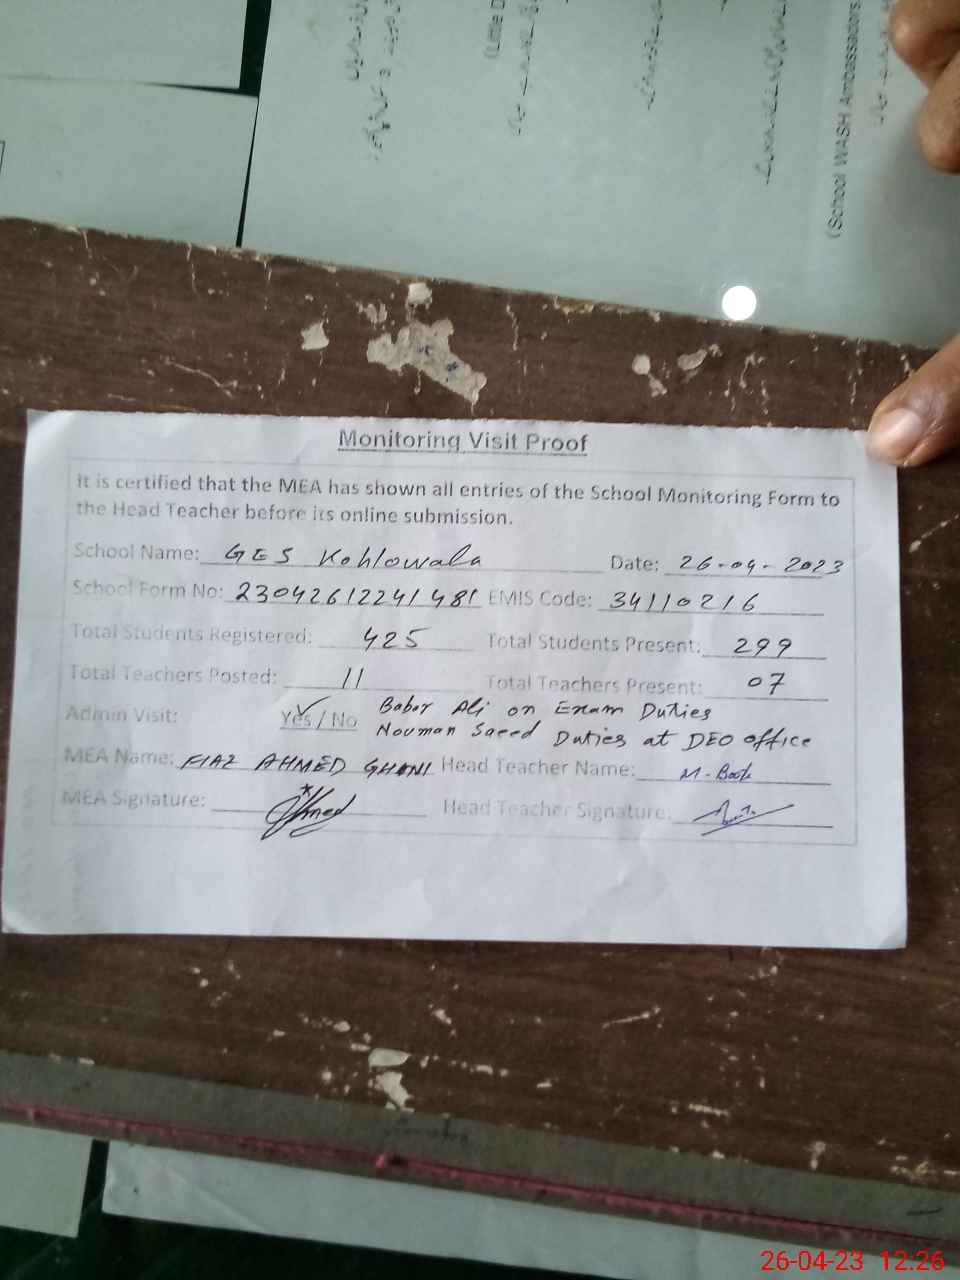 (Little D
(School WASH Ambassadors
Monitoring Visit Proof
It is certified that the MEA has shown all entries of the School Monitoring Form to
the Head Teacher before its online submission.
School Name: GES Kohlowala Date: 26-04-2023
School Form No: 23042612241481 EMIS Code: 34110216
Total Students Registered: 425 Total Students Present: 299
Total Teachers Posted: 11 Total Teachers Present: 07
Admin Visit: Yes / No Babar Ali on Exam Duties
Nouman Saeed Duties at DEO office
MEA Name: FIAZ AHMED GHANI Head Teacher Name: M-Boota
MEA Signature: Head Teacher Signature:
26-04-23 12:26